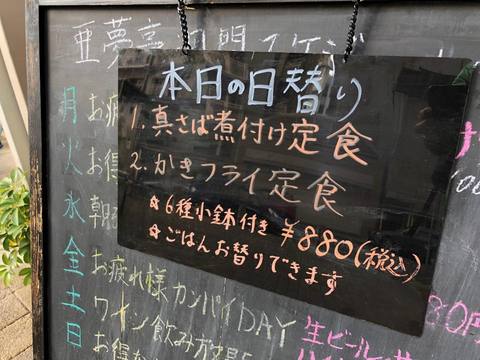 亜夢亭
本日の日替り
1. 真さば煮付け定食
2. かきフライ定食
☆6種小鉢付き ¥880(税込)
☆ごはんお替りできます
月 お疲
火 お得
水 朝
金 お疲れ様カンパイDAY
土 ワイン飲み
日 お得な
生ビール